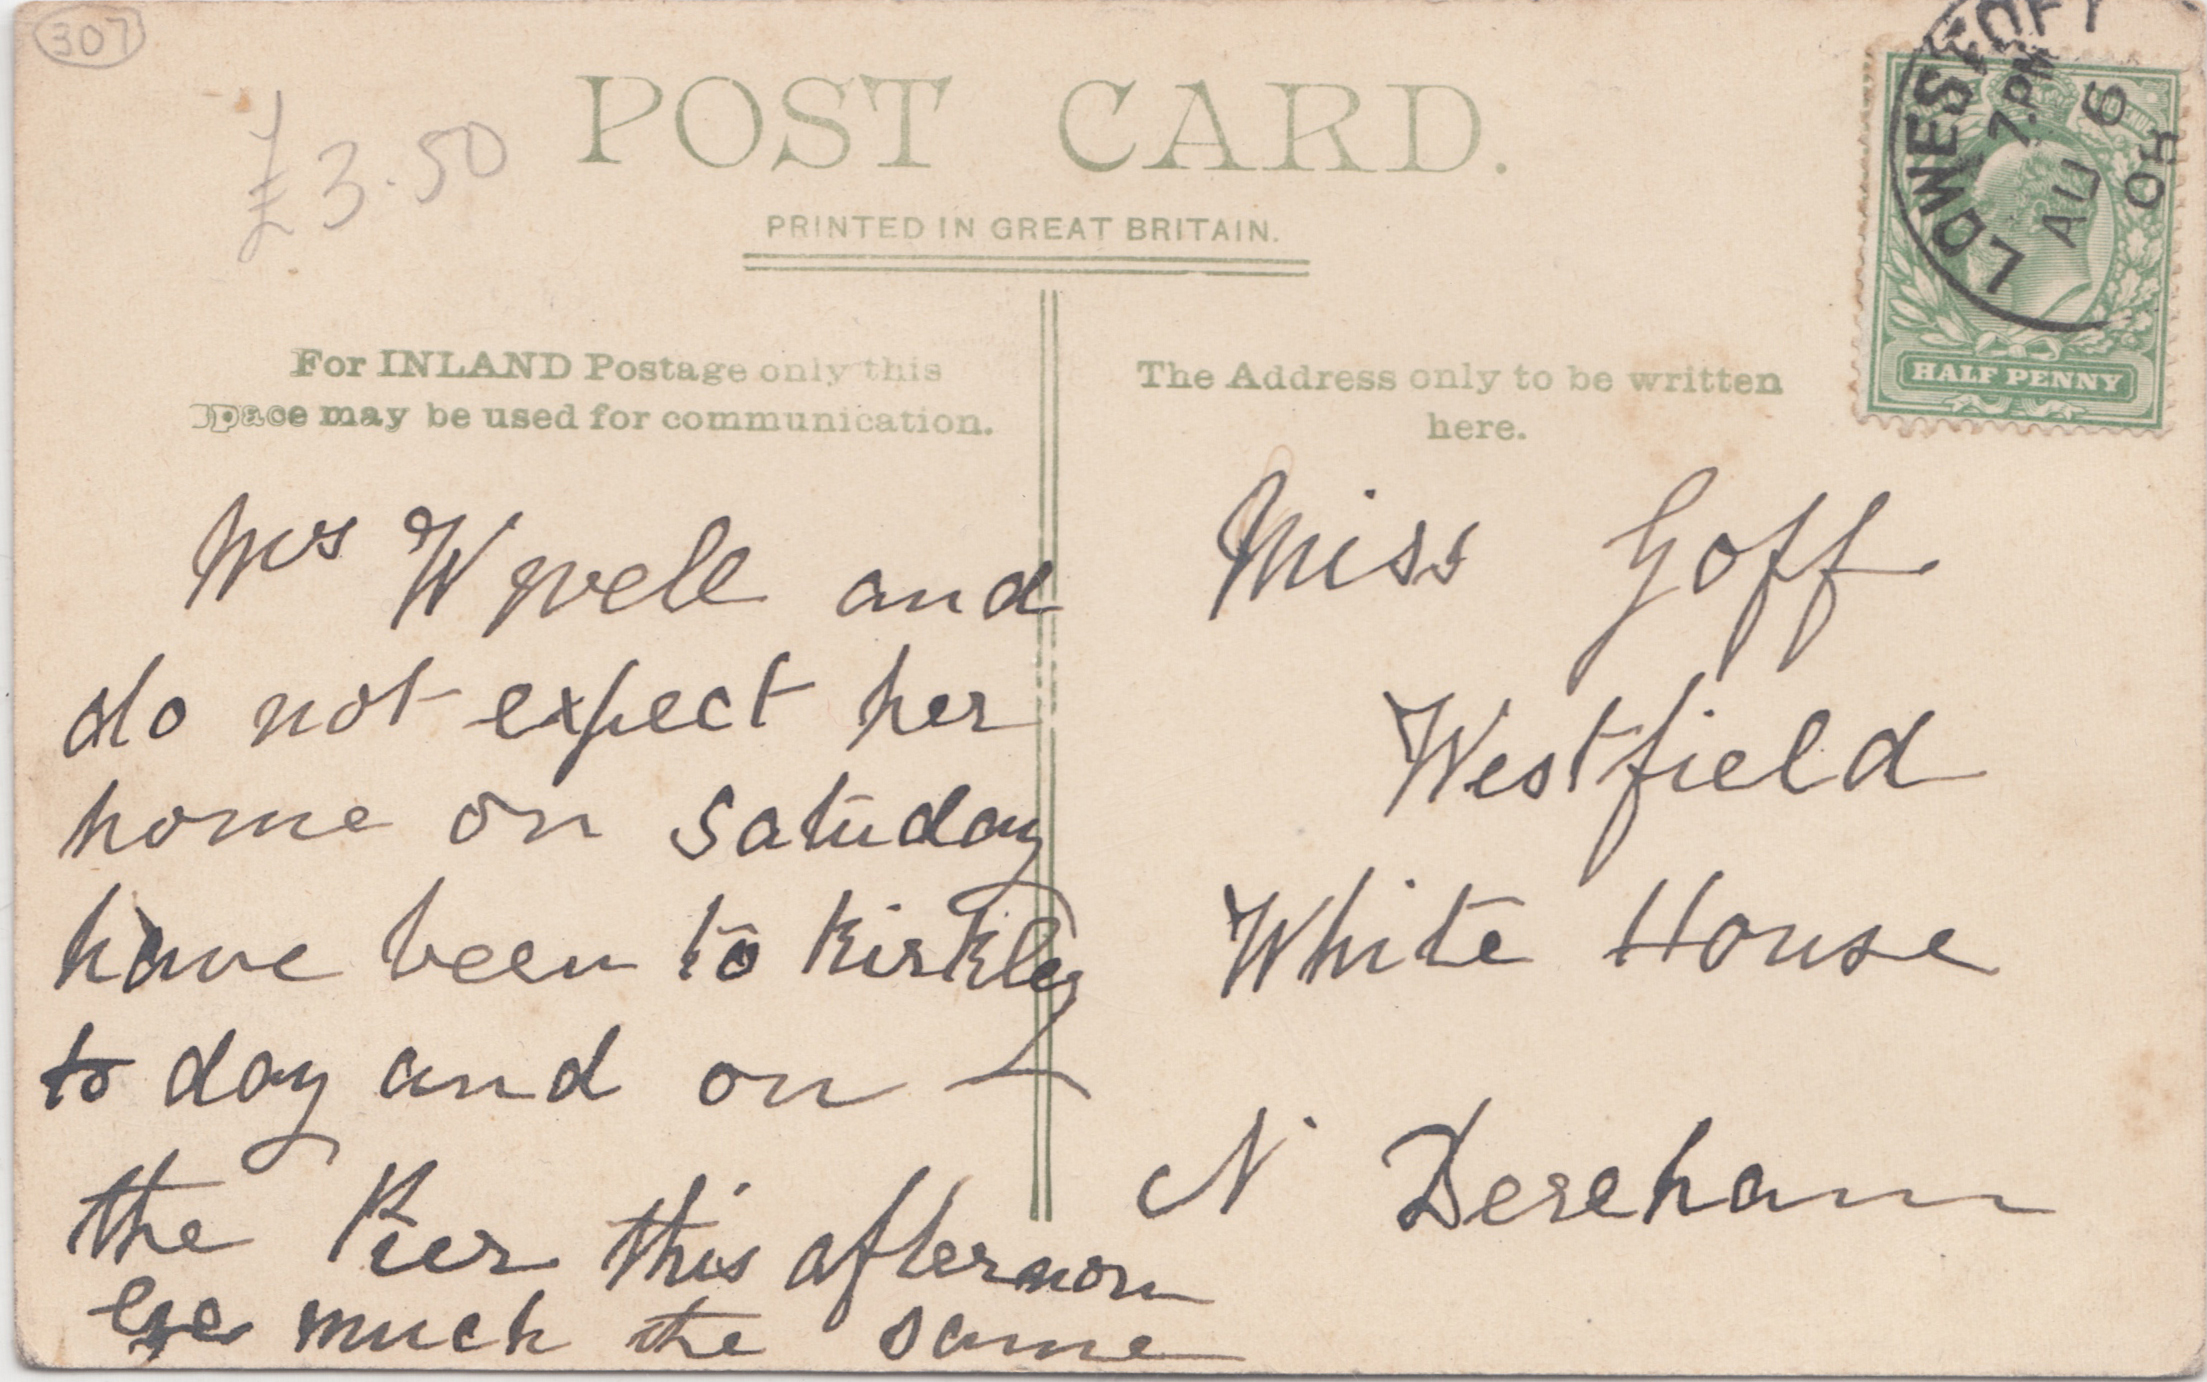 307
£3.50
POST CARD.
PRINTED IN GREAT BRITAIN.
LOWESTOFT
7.PM
AU 6
08
HALF PENNY
For INLAND Postage only this
space may be used for communication.
The Address only to be written
here.
Mrs and
do not expect her
home on Satuday
have been to Kirkley
to day and on
the Pier this afternoon
much the same
Miss Goff
Westfield
White House
N Dereham